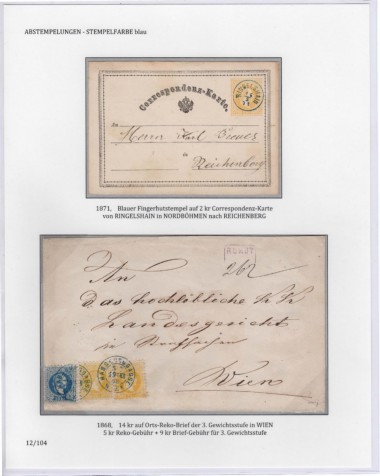 ABSTEMPELUNGEN - STEMPELFARBE blau
Correspondenz-Karte.
An
Herrn Karl
Reichenberg
1871, Blauer Fingerhutstempel auf 2 kr Correspondenz-Karte
von RINGELSHAIN in NORDBÖHMEN nach REICHENBERG
262
An
das hochlöbliche K K
Landesgericht
in Strafsachen
Wien
1868, 14 kr auf Orts-Reko-Brief der 3. Gewichtsstufe in WIEN
5 kr Reko-Gebühr + 9 kr Brief-Gebühr für 3. Gewichtsstufe
12/104